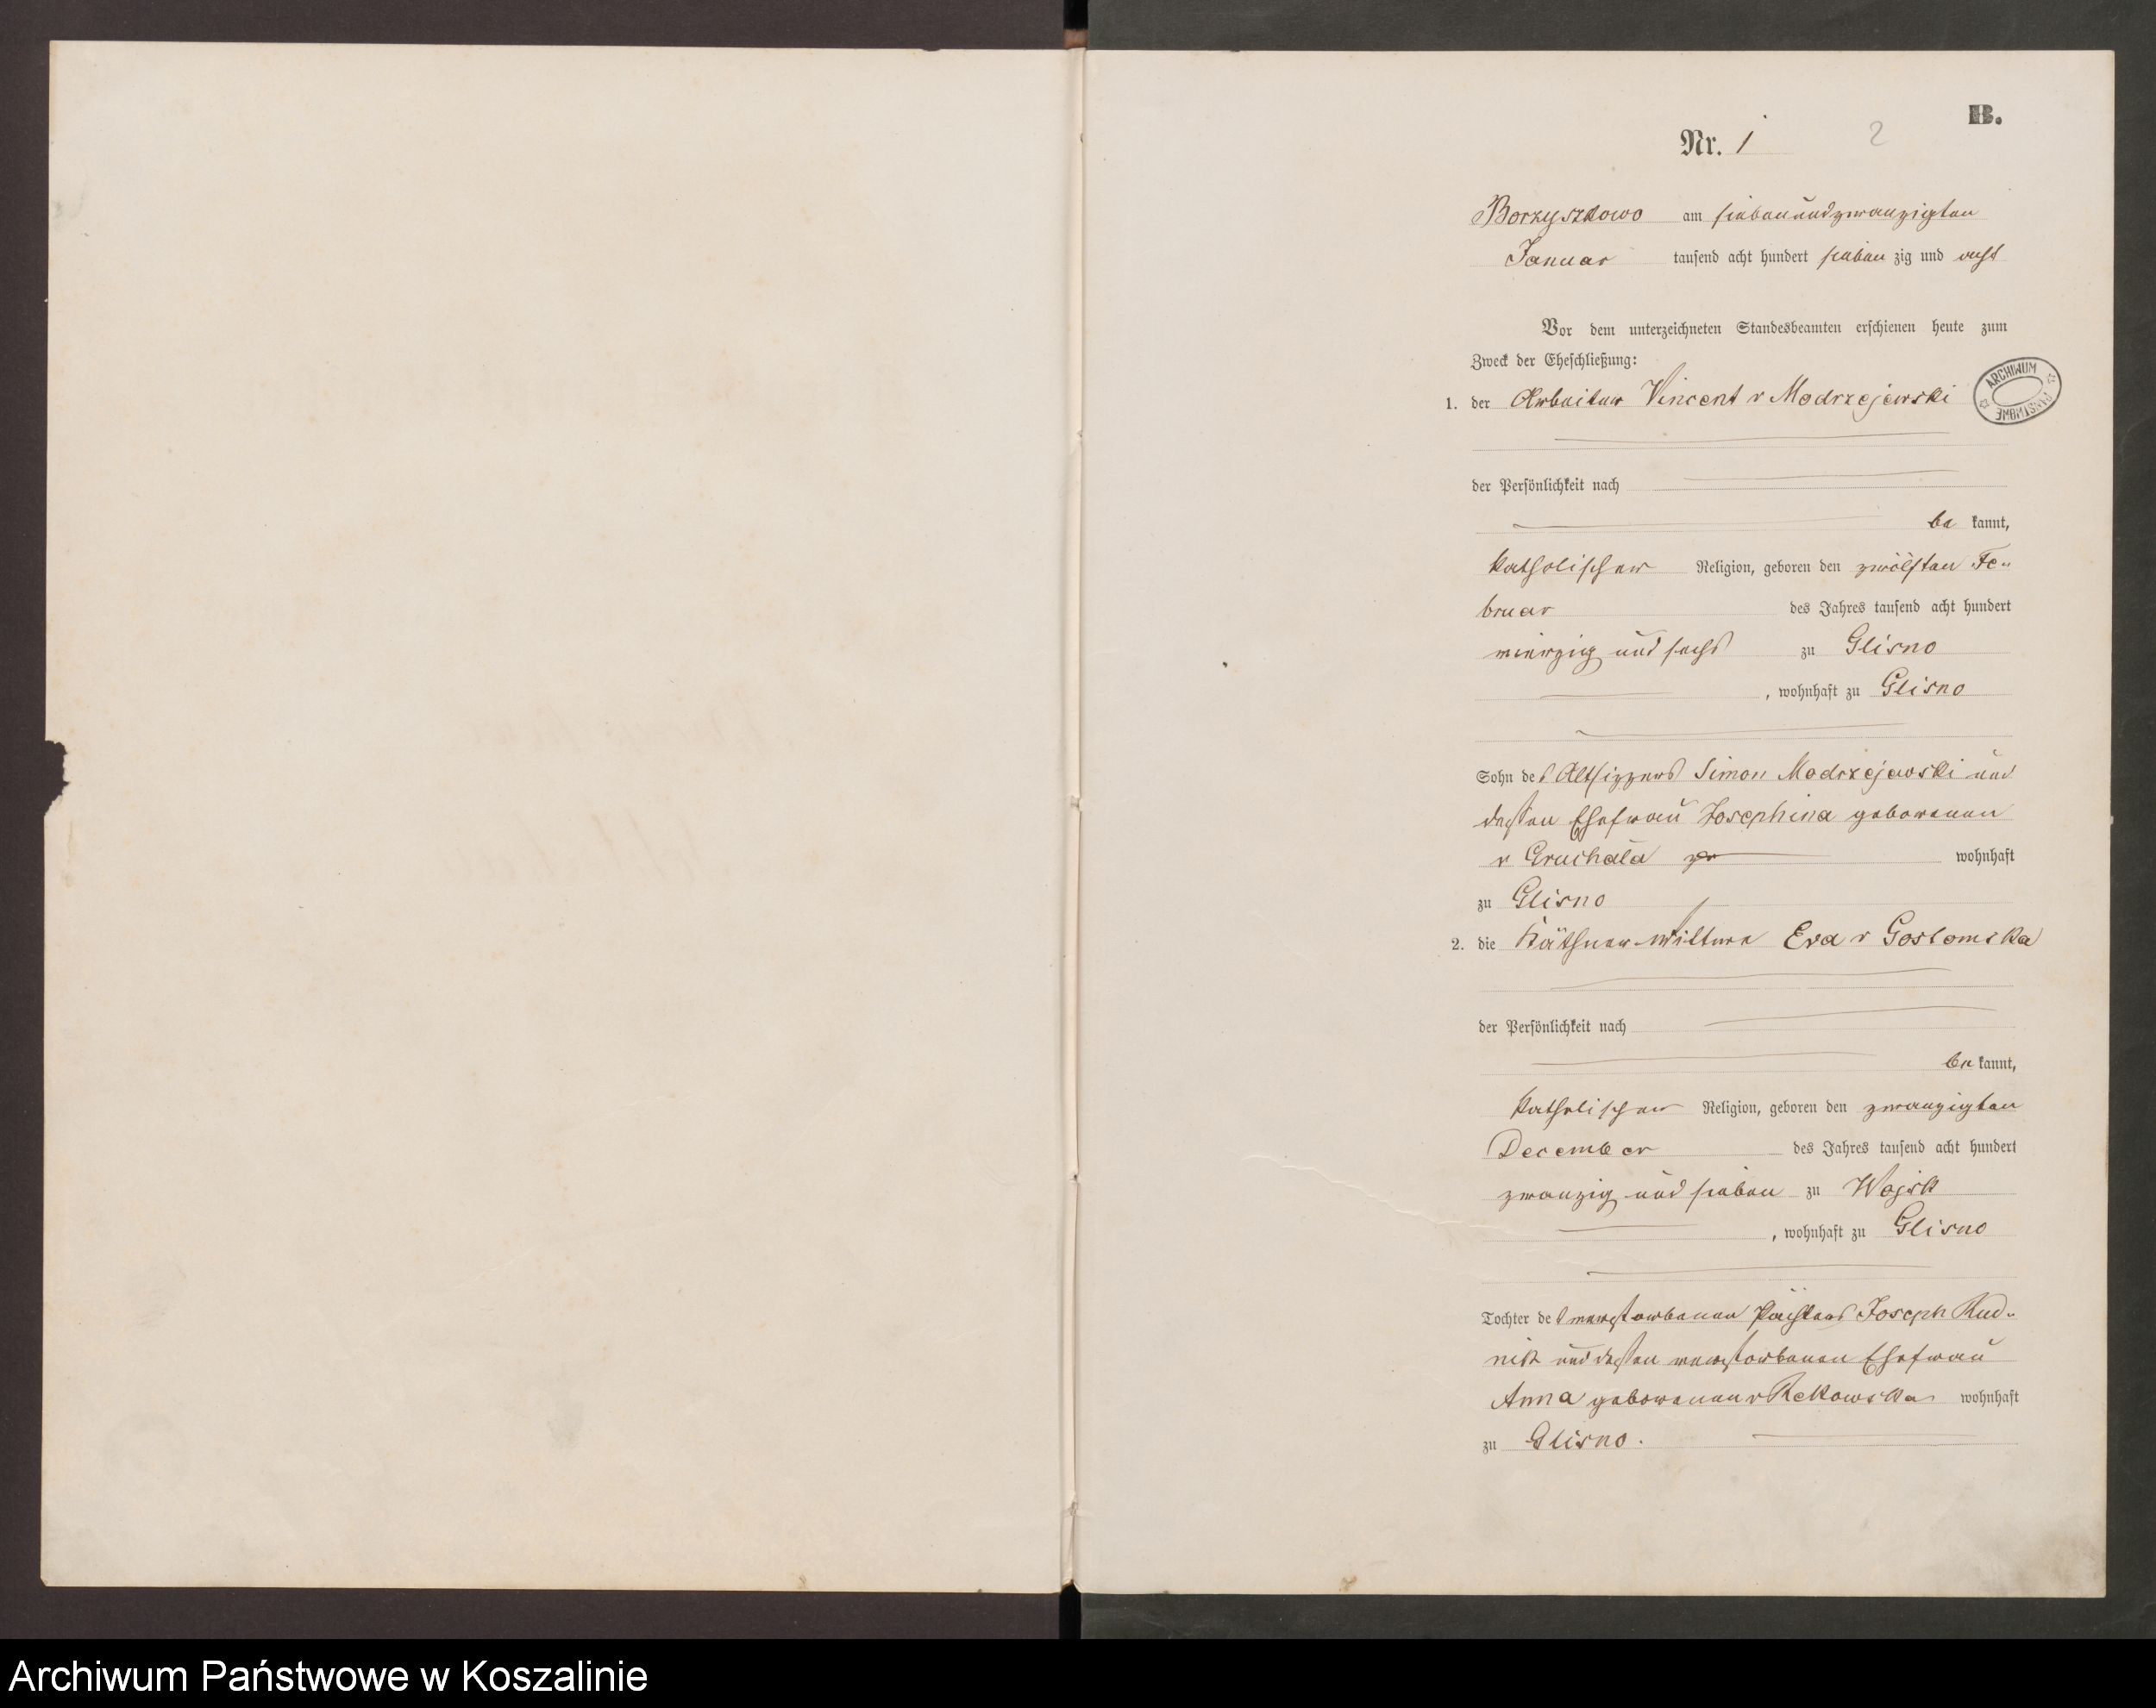 B.
Nr. 1
2
Borzyszkowo am siebenundzwanzigsten
Januar tausend acht hundert sieben zig und acht
Vor dem unterzeichneten Standesbeamten erschienen heute zum
Zweck der Eheschließung:
1. der Arbeiter Vincent v Modrzejewski
ARCHIWUM PAŃSTWOWE
der Persönlichkeit nach
be kannt,
katholischer Religion, geboren den zwölften Fe-
bruar des Jahres tausend acht hundert
vierzig und sechs zu Glisno
, wohnhaft zu Glisno
Sohn des Altsitzers Simon Modrzejewski und
dessen Ehefrau Josephina geborenen
v Gruchała wohnhaft
zu Glisno
2. die Käthner-Wittwe Eva v Gostomska
der Persönlichkeit nach
be kannt,
katholischer Religion, geboren den zwanzigsten
December des Jahres tausend acht hundert
zwanzig und sieben zu Wojsk
, wohnhaft zu Glisno
Tochter des verstorbenen Pächters Joseph Rud-
nik und dessen verstorbenen Ehefrau
Anna geborenen v Rekowska wohnhaft
zu Glisno.
Archiwum Państwowe w Koszalinie